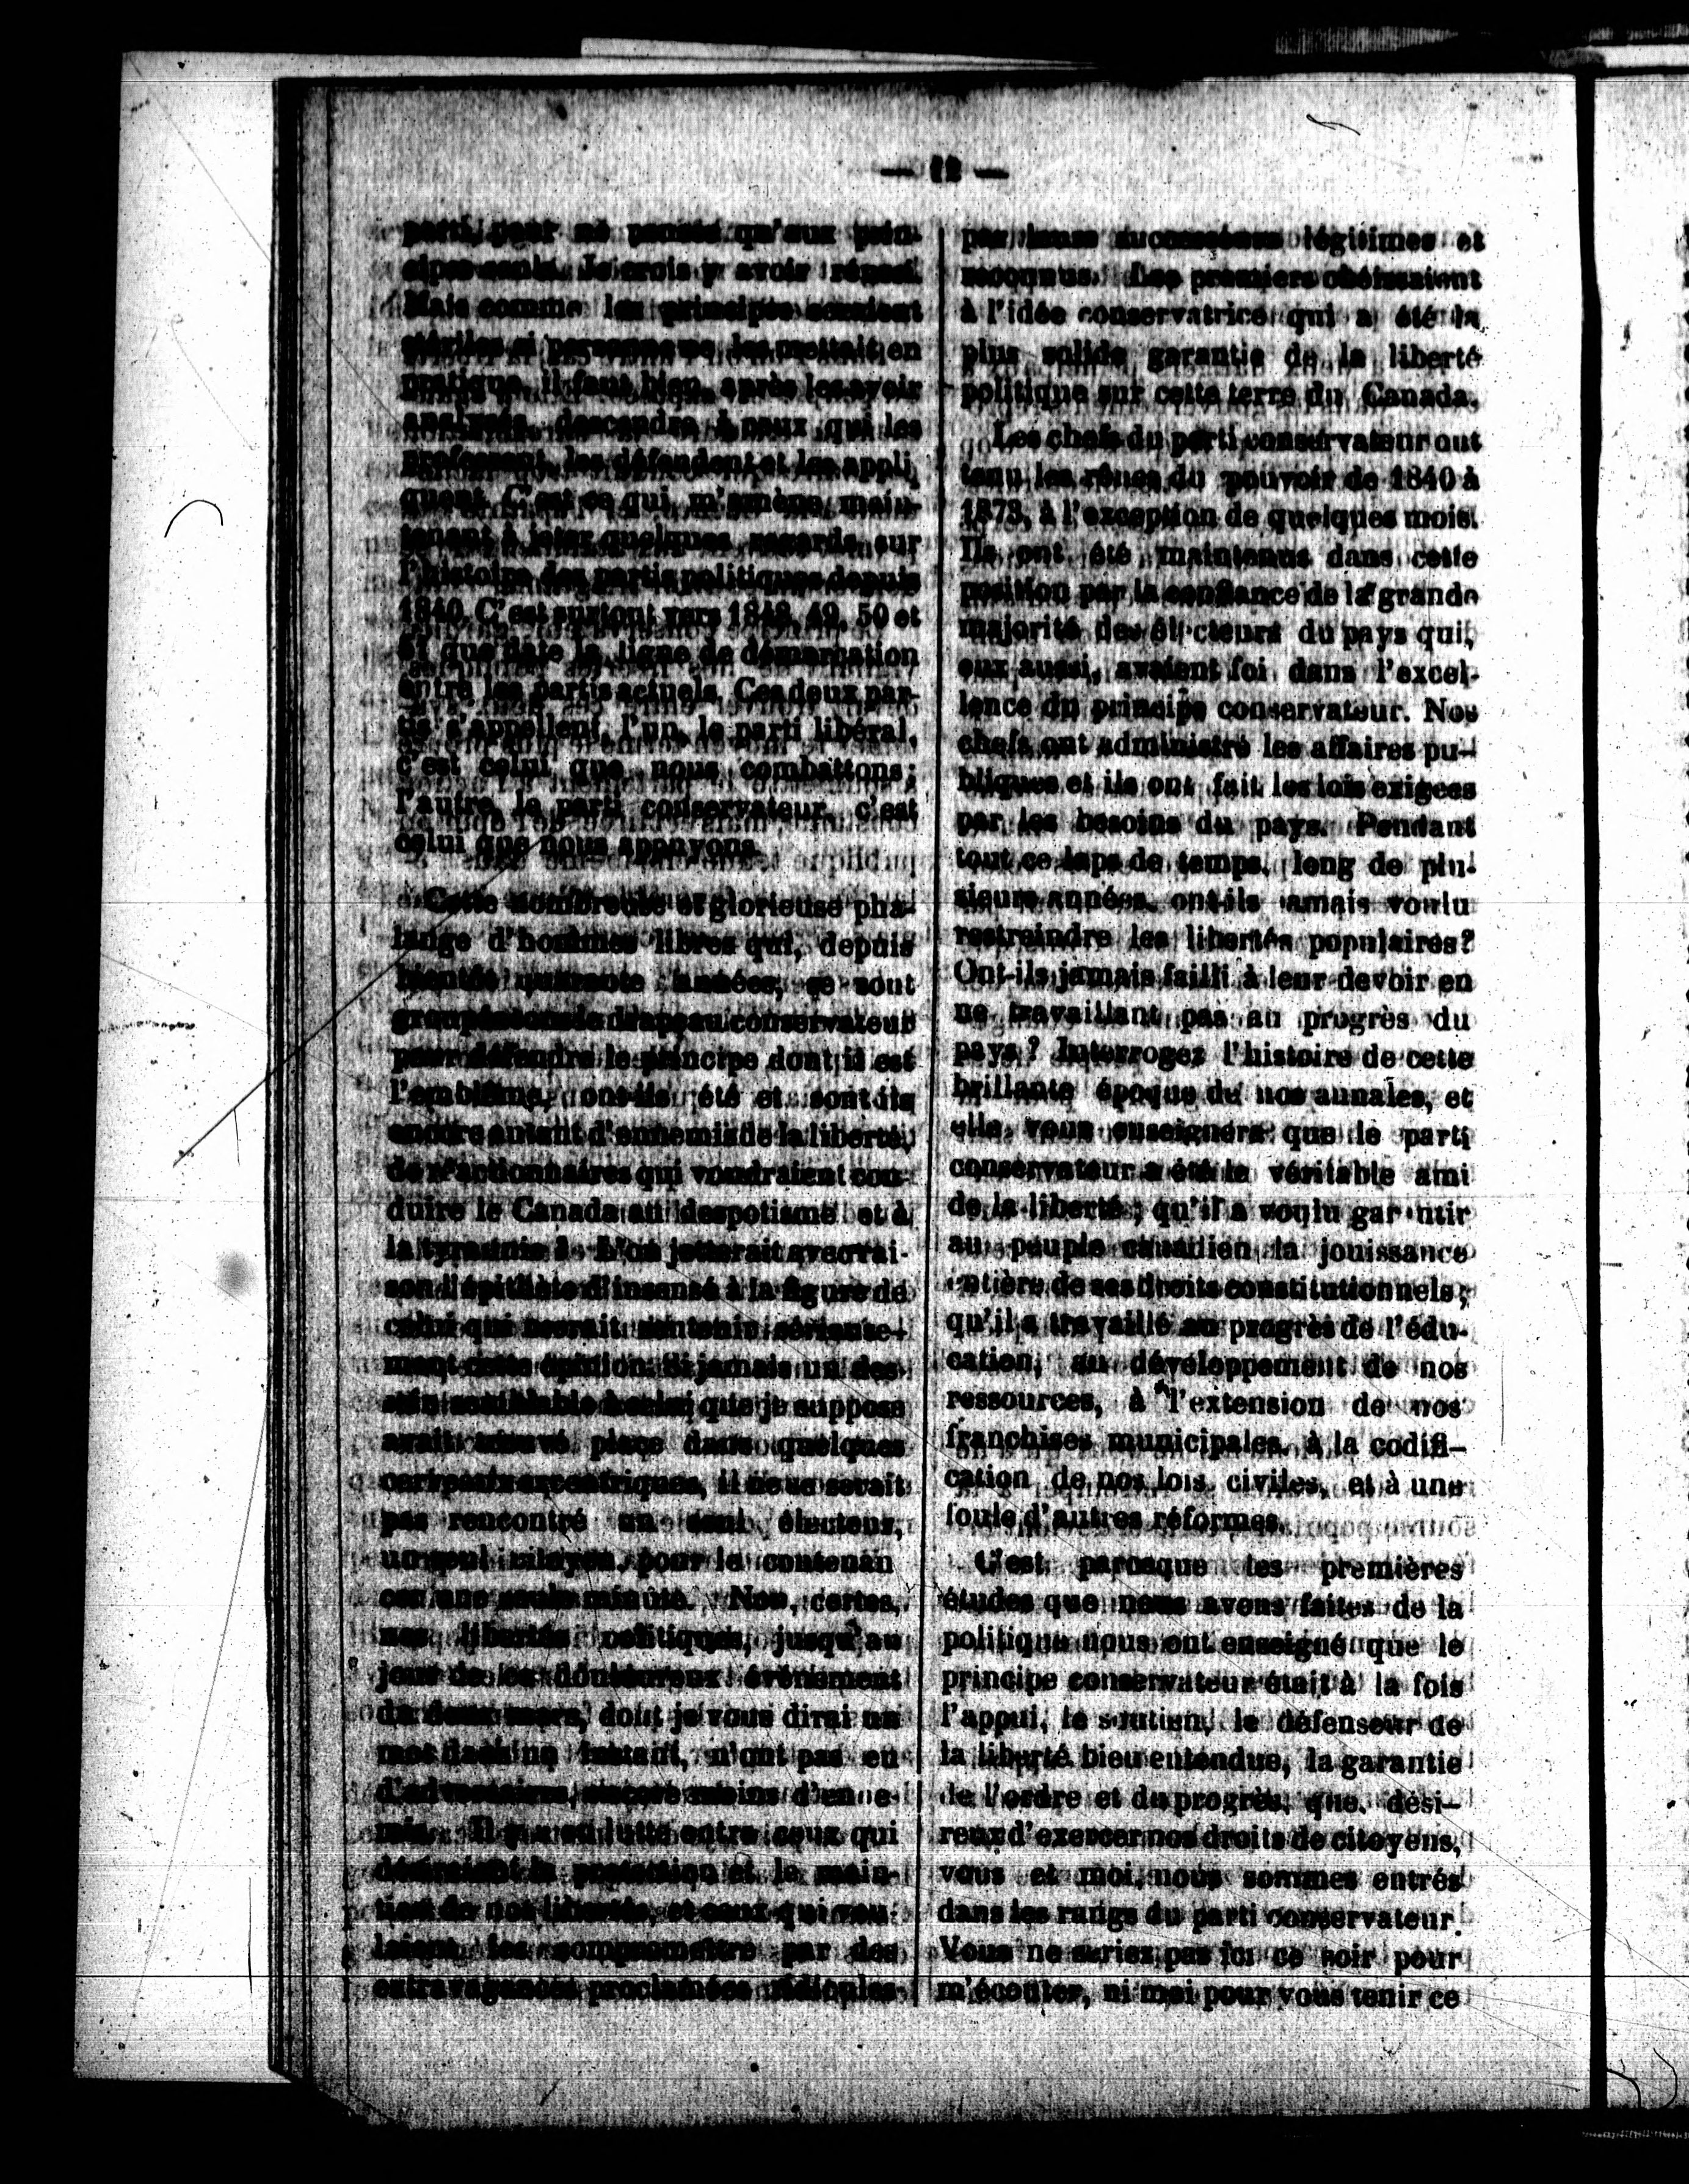 — 12 —
parti, pour ne penser qu'aux prin-
cipes seuls. Je crois y avoir réussi.
Mais comme les principes seraient
stériles si personne ne les mettait en
pratique, il faut bien, après les avoir
analysés, descendre à ceux qui les
professent, les défendent et les appli
quent. C'est ce qui m'amène main-
tenant à jeter quelques regards sur
l'histoire des partis politiques depuis
1840. C'est surtout vers 1848, 49, 50 et
51 que date la ligne de démarcation
entre les partis actuels. Ces deux par-
tis s'appellent, l'un, le parti libéral,
c'est celui que nous combattons;
l'autre, le parti conservateur, c'est
celui que nous appuyons.
Cette nombreuse et glorieuse pha-
lange d'hommes libres qui, depuis
bientôt quarante années, se sont
groupés sous le drapeau conservateur
pour défendre le principe dont il est
l'emblême, ont-ils été et sont-ils
encore autant d'ennemis de la liberté,
de réactionnaires qui voudraient con-
duire le Canada au despotisme et à
la tyrannie ? L'on jetterait avec rai-
son l'épithète d'insensé à la figure de
celui qui oserait soutenir sérieuse-
ment cette opinion. Si jamais un des-
sein semblable à celui que je suppose
avait trouvé place dans quelques
cerveaux excentriques, il ne se serait
pas rencontré un seul électeur,
un seul citoyen pour le
une seule minute. Non, certes,
nos libertés politiques, jusqu'au
jour de ce douloureux événement
du deux mars, dont je vous dirai un
mot dans un instant, n'ont pas eu
d'adversaires, encore moins d'enne-
mis. Il y a eu lutte entre ceux qui
désiraient la protection et le main-
tien de nos libertés, et ceux qui vou-
laient les compromettre par des
extravagances proclamées ridicules
par leurs successeurs légitimes et
reconnus. Les premiers obéissaient
à l'idée conservatrice qui a été la
plus solide garantie de la liberté
politique sur cette terre du Canada.
Les chefs du parti conservateur ont
tenu les rênes du pouvoir de 1840 à
1873, à l'exception de quelques mois.
Ils ont été maintenus dans cette
position par la confiance de la grande
majorité des électeurs du pays qui,
eux aussi, avaient foi dans l'excel-
lence du principe conservateur. Nos
chefs ont administré les affaires pu-
bliques et ils ont fait les lois exigées
par les besoins du pays. Pendant
tout ce laps de temps, long de plu-
sieurs années, ont-ils jamais voulu
restreindre les libertés populaires?
Ont-ils jamais failli à leur devoir en
ne travaillant pas au progrès du
pays ? Interrogez l'histoire de cette
brillante époque de nos annales, et
elle vous enseignera que le parti
conservateur a été le véritable ami
de la liberté ; qu'il a voulu garantir
au peuple canadien la jouissance
entière de ses droits constitutionnels ;
qu'il a travaillé au progrès de l'édu-
cation, au développement de nos
ressources, à l'extension de nos
franchises municipales, à la codifi-
cation de nos lois civiles, et à une
foule d'autres réformes.
C'est parceque les premières
études que nous avons faites de la
politique nous ont enseigné que le
principe conservateur était à la fois
l'appui, le soutien, le défenseur de
la liberté bien entendue, la garantie
de l'ordre et du progrès, que, dési-
reux d'exercer nos droits de citoyens,
vous et moi, nous sommes entrés
dans les rangs du parti conservateur.
Vous ne seriez pas ici ce soir pour
m'écouter, ni moi pour vous tenir ce